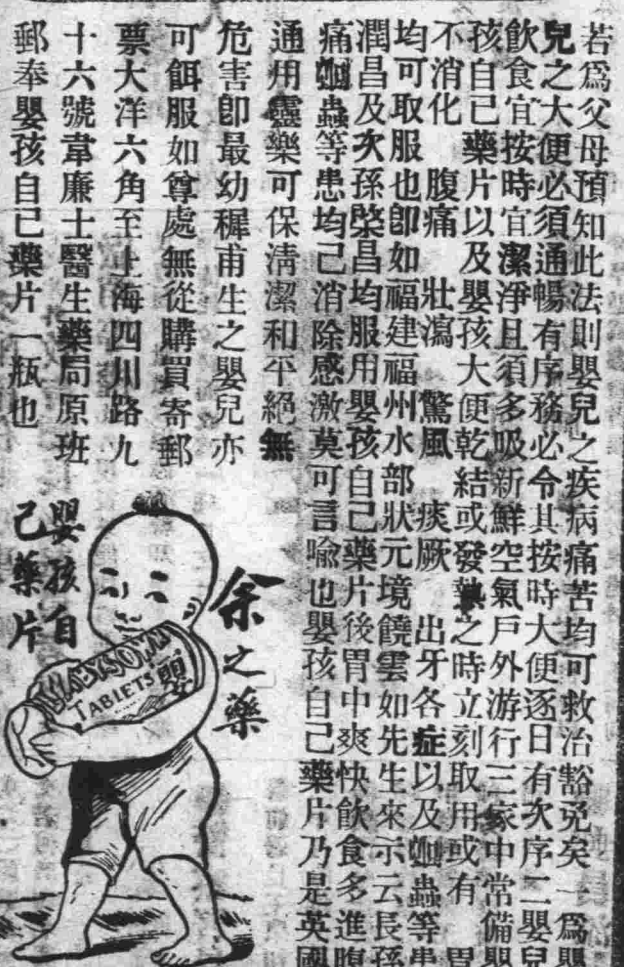 若爲父母預知此法則嬰兒之疾病痛苦均可救治豁免矣一爲嬰
兒之大便必須通暢有序務必令其按時大便逐日有次序二嬰兒
飲食宜按時宜潔淨且須多吸新鮮空氣戶外游行三家中常備嬰
孩自己藥片以及嬰孩大便乾結或發熱之時立刻取用或有 胃
不消化 腹痛 壯瀉 驚風 痰厥 出牙各症以及蛔蟲等患
均可取服也卽如福建福州水部狀元境饒雲如先生來示云長孫
潤昌及次孫棨昌均服用嬰孩自己藥片後胃中爽快飲食多進腹
痛蛔蟲等患均己消除感激莫可言喻也嬰孩自己藥片乃是英國
通用靈藥可保清潔和平絕無
危害卽最幼穉甫生之嬰兒亦
可餌服如尊處無從購買寄郵
票大洋六角至上海四川路九
十六號韋廉士醫生藥局原班
郵奉嬰孩自己藥片一瓶也
余之藥
嬰孩自
己藥片
BABY'S OWN
TABLETS
嬰